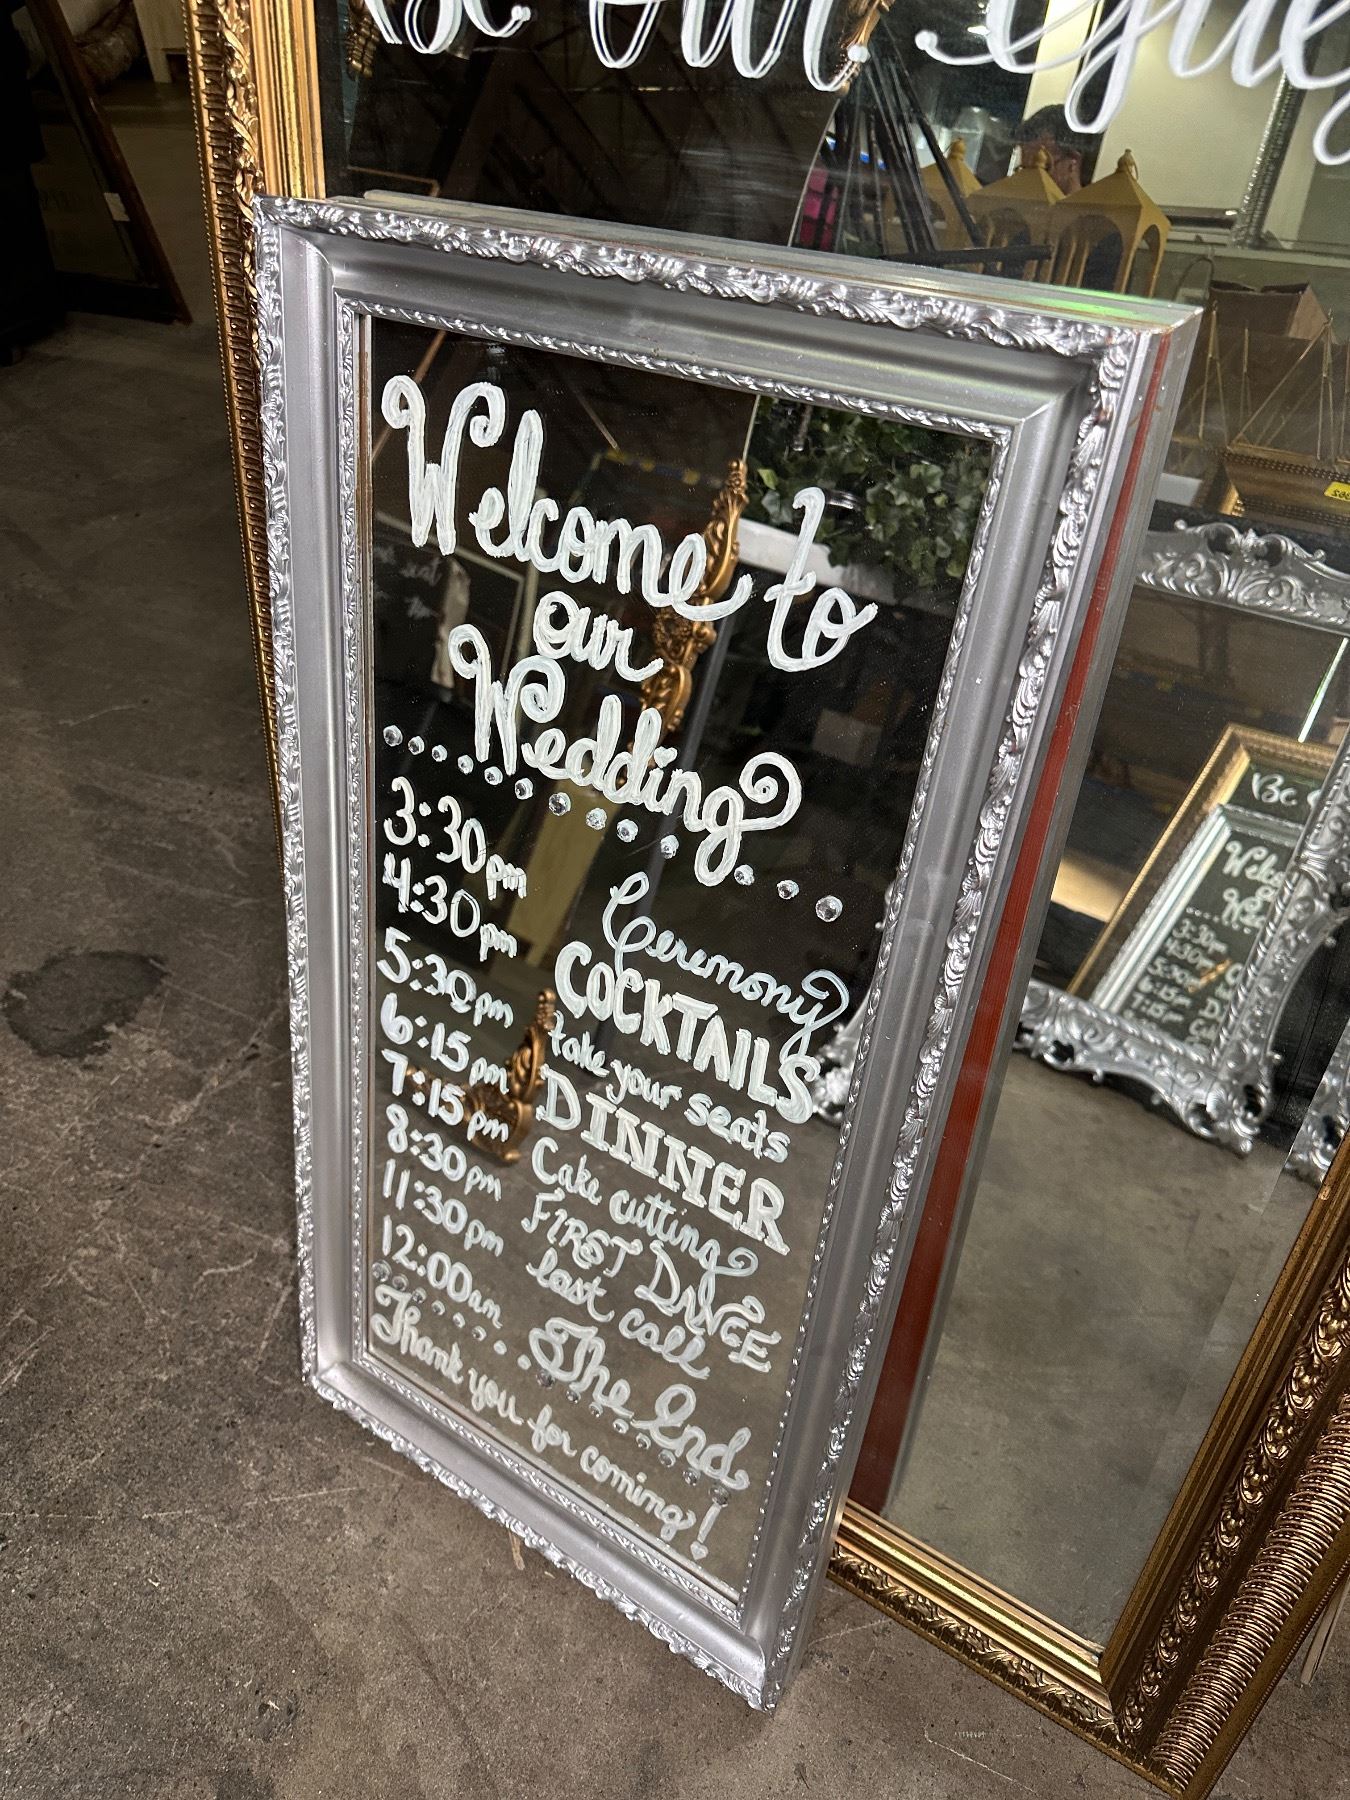 Be our Gue
Welcome to
our
Wedding
3:30pm Ceremony
4:30pm COCKTAILS
5:30pm take your seats
6:15pm DINNER
7:15pm Cake cutting
8:30pm FIRST DANCE
11:30pm last call
12:00am The End
Thank you for coming!
Be
Welco
We
3:30pm
4:30pm
5:30pm
6:15pm
7:15pm